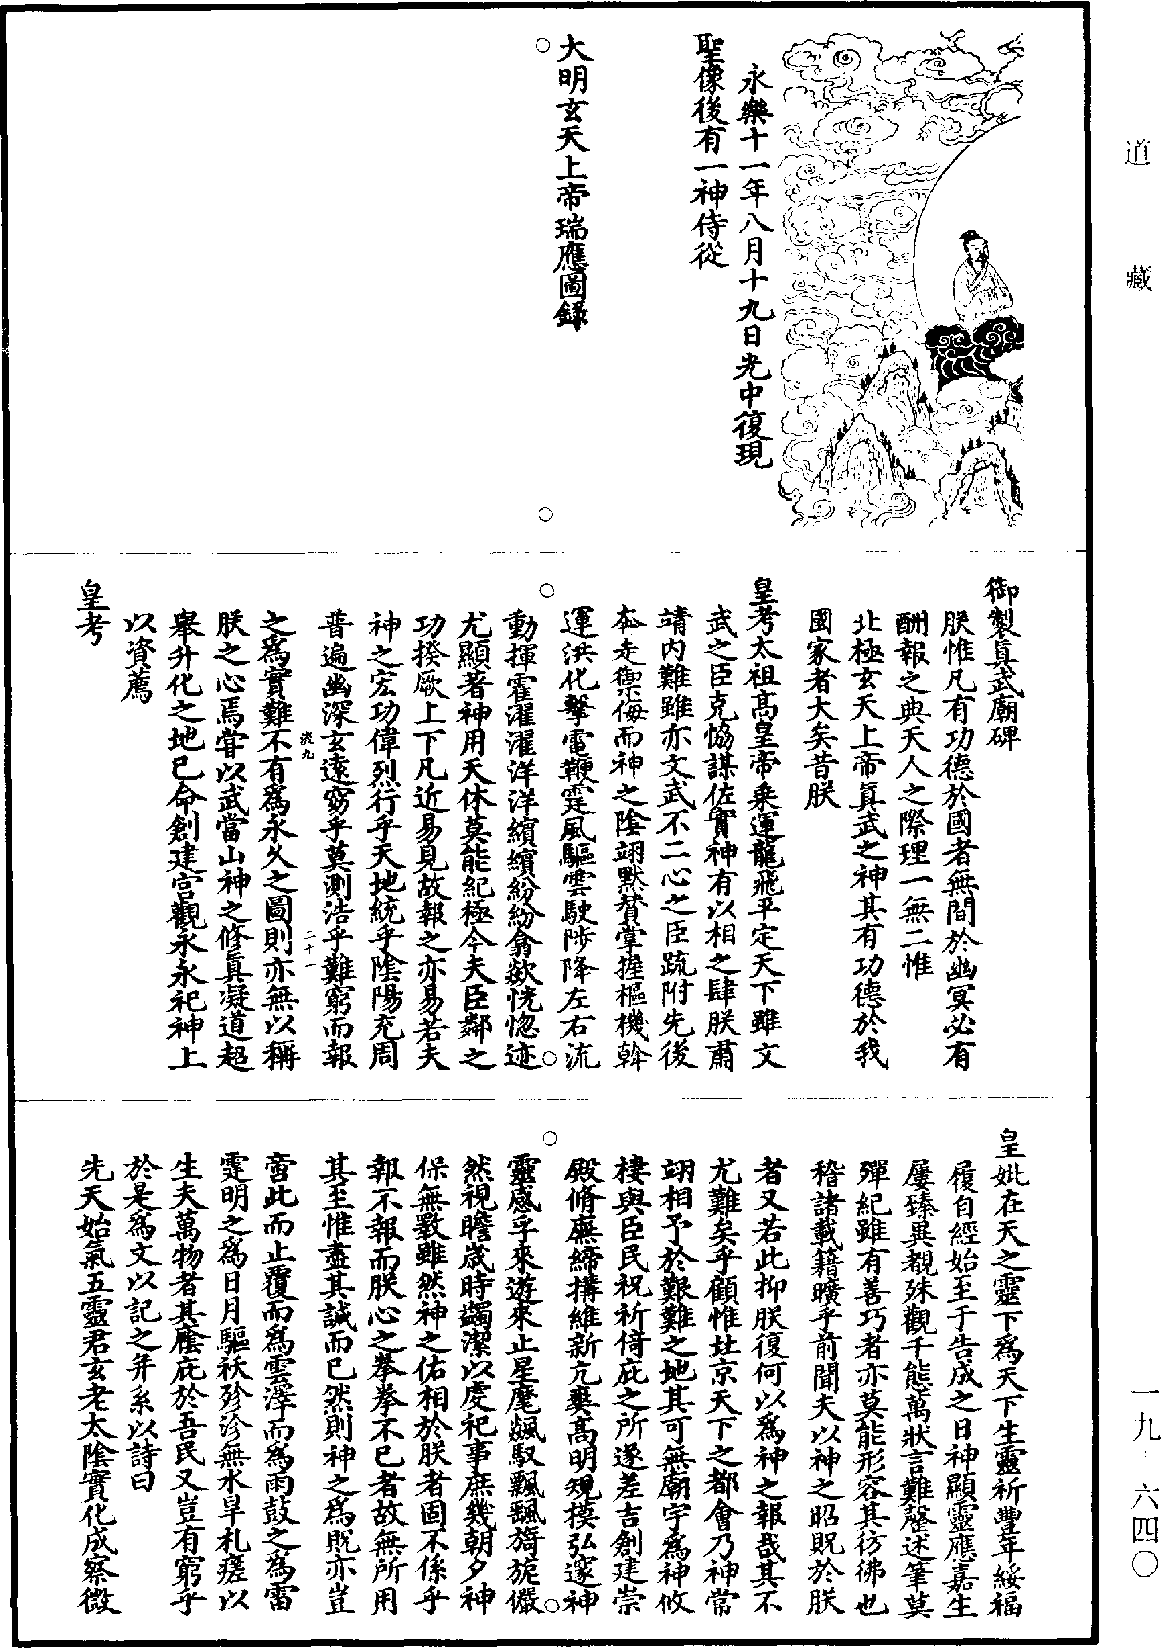 道藏
永樂十一年八月十九日光中復現
聖像後有一神侍從
大明玄天上帝瑞應圖錄
御製真武廟碑
朕惟凡有功德於國者無間於幽冥必有
酬報之典天人之際理一無二惟
北極玄天上帝真武之神其有功德於我
國家者大矣昔朕
皇考太祖高皇帝乘運龍飛平定天下雖文
武之臣克協謀佐實神有以相之肆朕肅
靖內難雖亦文武不二心之臣疏附先後
奔走禦侮而神之陰翊默贊掌握樞機斡
運洪化擊電鞭霆風驅雲駛陟降左右流
動揮霍濯濯洋洋繽繽紛紛翕欻恍惚迹
尤顯著神用天休莫能紀極今夫臣鄰之
功揆厥上下凡近易見故報之亦易若夫
神之宏功偉烈行乎天地統乎陰陽充周
普遍幽深玄遠窮乎莫測浩乎難窮而報
之為實難不有為永久之圖則亦無以稱
朕之心焉嘗以武當山神之修真凝道超
舉升化之地已命創建宮觀永永祀神上
以資薦
皇考
二十一
皇妣在天之靈下為天下生靈祈豐年綏福
履自經始至于告成之日神顯靈應嘉生
屢臻異覩殊觀千態萬狀言難罄述筆莫
彈紀雖有善巧者亦莫能形容其彷彿也
稽諸載籍曠乎前聞夫以神之昭貺於朕
者又若此抑朕復何以為神之報哉其不
尤難矣乎顧惟北京天下之都會乃神常
翊相予於艱難之地其可無廟宇為神攸
棲與臣民祝祈倚庇之所遂差吉創建崇
殿脩廡締搆維新亢爽高明規模弘邃神
靈感孚來遊來止星麾飊馭飄飄旖旎儼
然視瞻歲時蠲潔以虔祀事庶幾朝夕神
保無斁雖然神之佑相於朕者固不係乎
報不報而朕心之拳拳不已者故無所用
其至惟盡其誠而已然則神之為貺亦豈
啻此而止覆而為雲澤而為雨鼓之為雷
霆明之為日月驅祅殄沴無水旱札瘥以
生夫萬物者其廕庇於吾民又豈有窮乎
於是為文以記之并系以詩曰
先天始氣五靈君玄老太陰實化成察微
一九·六四〇